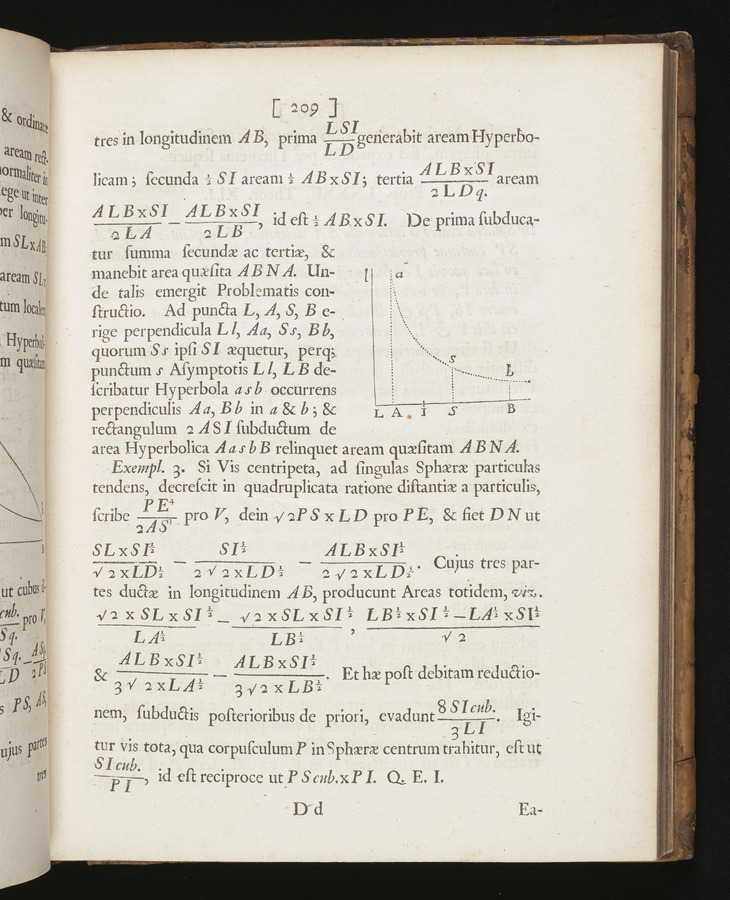 & ordinatæ
aream rect-
normaliter in
ege ut inter
per longitu-
m SL x AB;
aream SL
tum localem
Hyperbol-
m quæsitam
ut cubus
cub. pro V,
Sq.
LD 2PS
s PS, AS,
ujus partes
tres
[ 209 ]
tres in longitudinem AB, prima LSI/LD generabit aream Hyperbo-
licam; ſecunda ½ SI aream ½ ABxSI; tertia ALBxSI/2LDq. aream
ALBxSI/2LA – ALBxSI/2LB, id eſt ½ ABxSI. De prima ſubduca-
tur ſumma ſecundæ ac tertiæ, &
manebit area quæſita ABNA. Un-
de talis emergit Problematis con-
ſtructio. Ad puncta L, A, S, B e-
rige perpendicula Ll, Aa, Ss, Bb,
quorum Ss ipſi SI æquetur, perq;
punctum s Aſymptotis Ll, LB de-
ſcribatur Hyperbola asb occurrens
perpendiculis Aa, Bb in a & b; &
rectangulum 2ASI ſubductum de
l a
s b
L A I S B
area Hyperbolica AasbB relinquet aream quæſitam ABNA.
Exempl. 3. Si Vis centripeta, ad ſingulas Sphæræ particulas
tendens, decreſcit in quadruplicata ratione diſtantiæ a particulis,
ſcribe PE⁴/2AS³ pro V, dein √2PSxLD pro PE, & fiet DN ut
SLxSI½/√2xLD½ – SI½/2√2xLD½ – ALBxSI½/2√2xLD½. Cujus tres par-
tes ductæ in longitudinem AB, producunt Areas totidem, viz.
√2xSLxSI½/LA½ – √2xSLxSI½/LB½, LB½xSI½–LA½xSI½/√2
& ALBxSI½/3√2xLA½ – ALBxSI½/3√2xLB½. Et hæ poſt debitam reductio-
nem, ſubductis poſterioribus de priori, evadunt 8SIcub./3LI. Igi-
tur vis tota, qua corpuſculum P in Sphæræ centrum trahitur, eſt ut
SIcub./PI, id eſt reciproce ut PScub.xPI. Q. E. I.
Dd Ea-